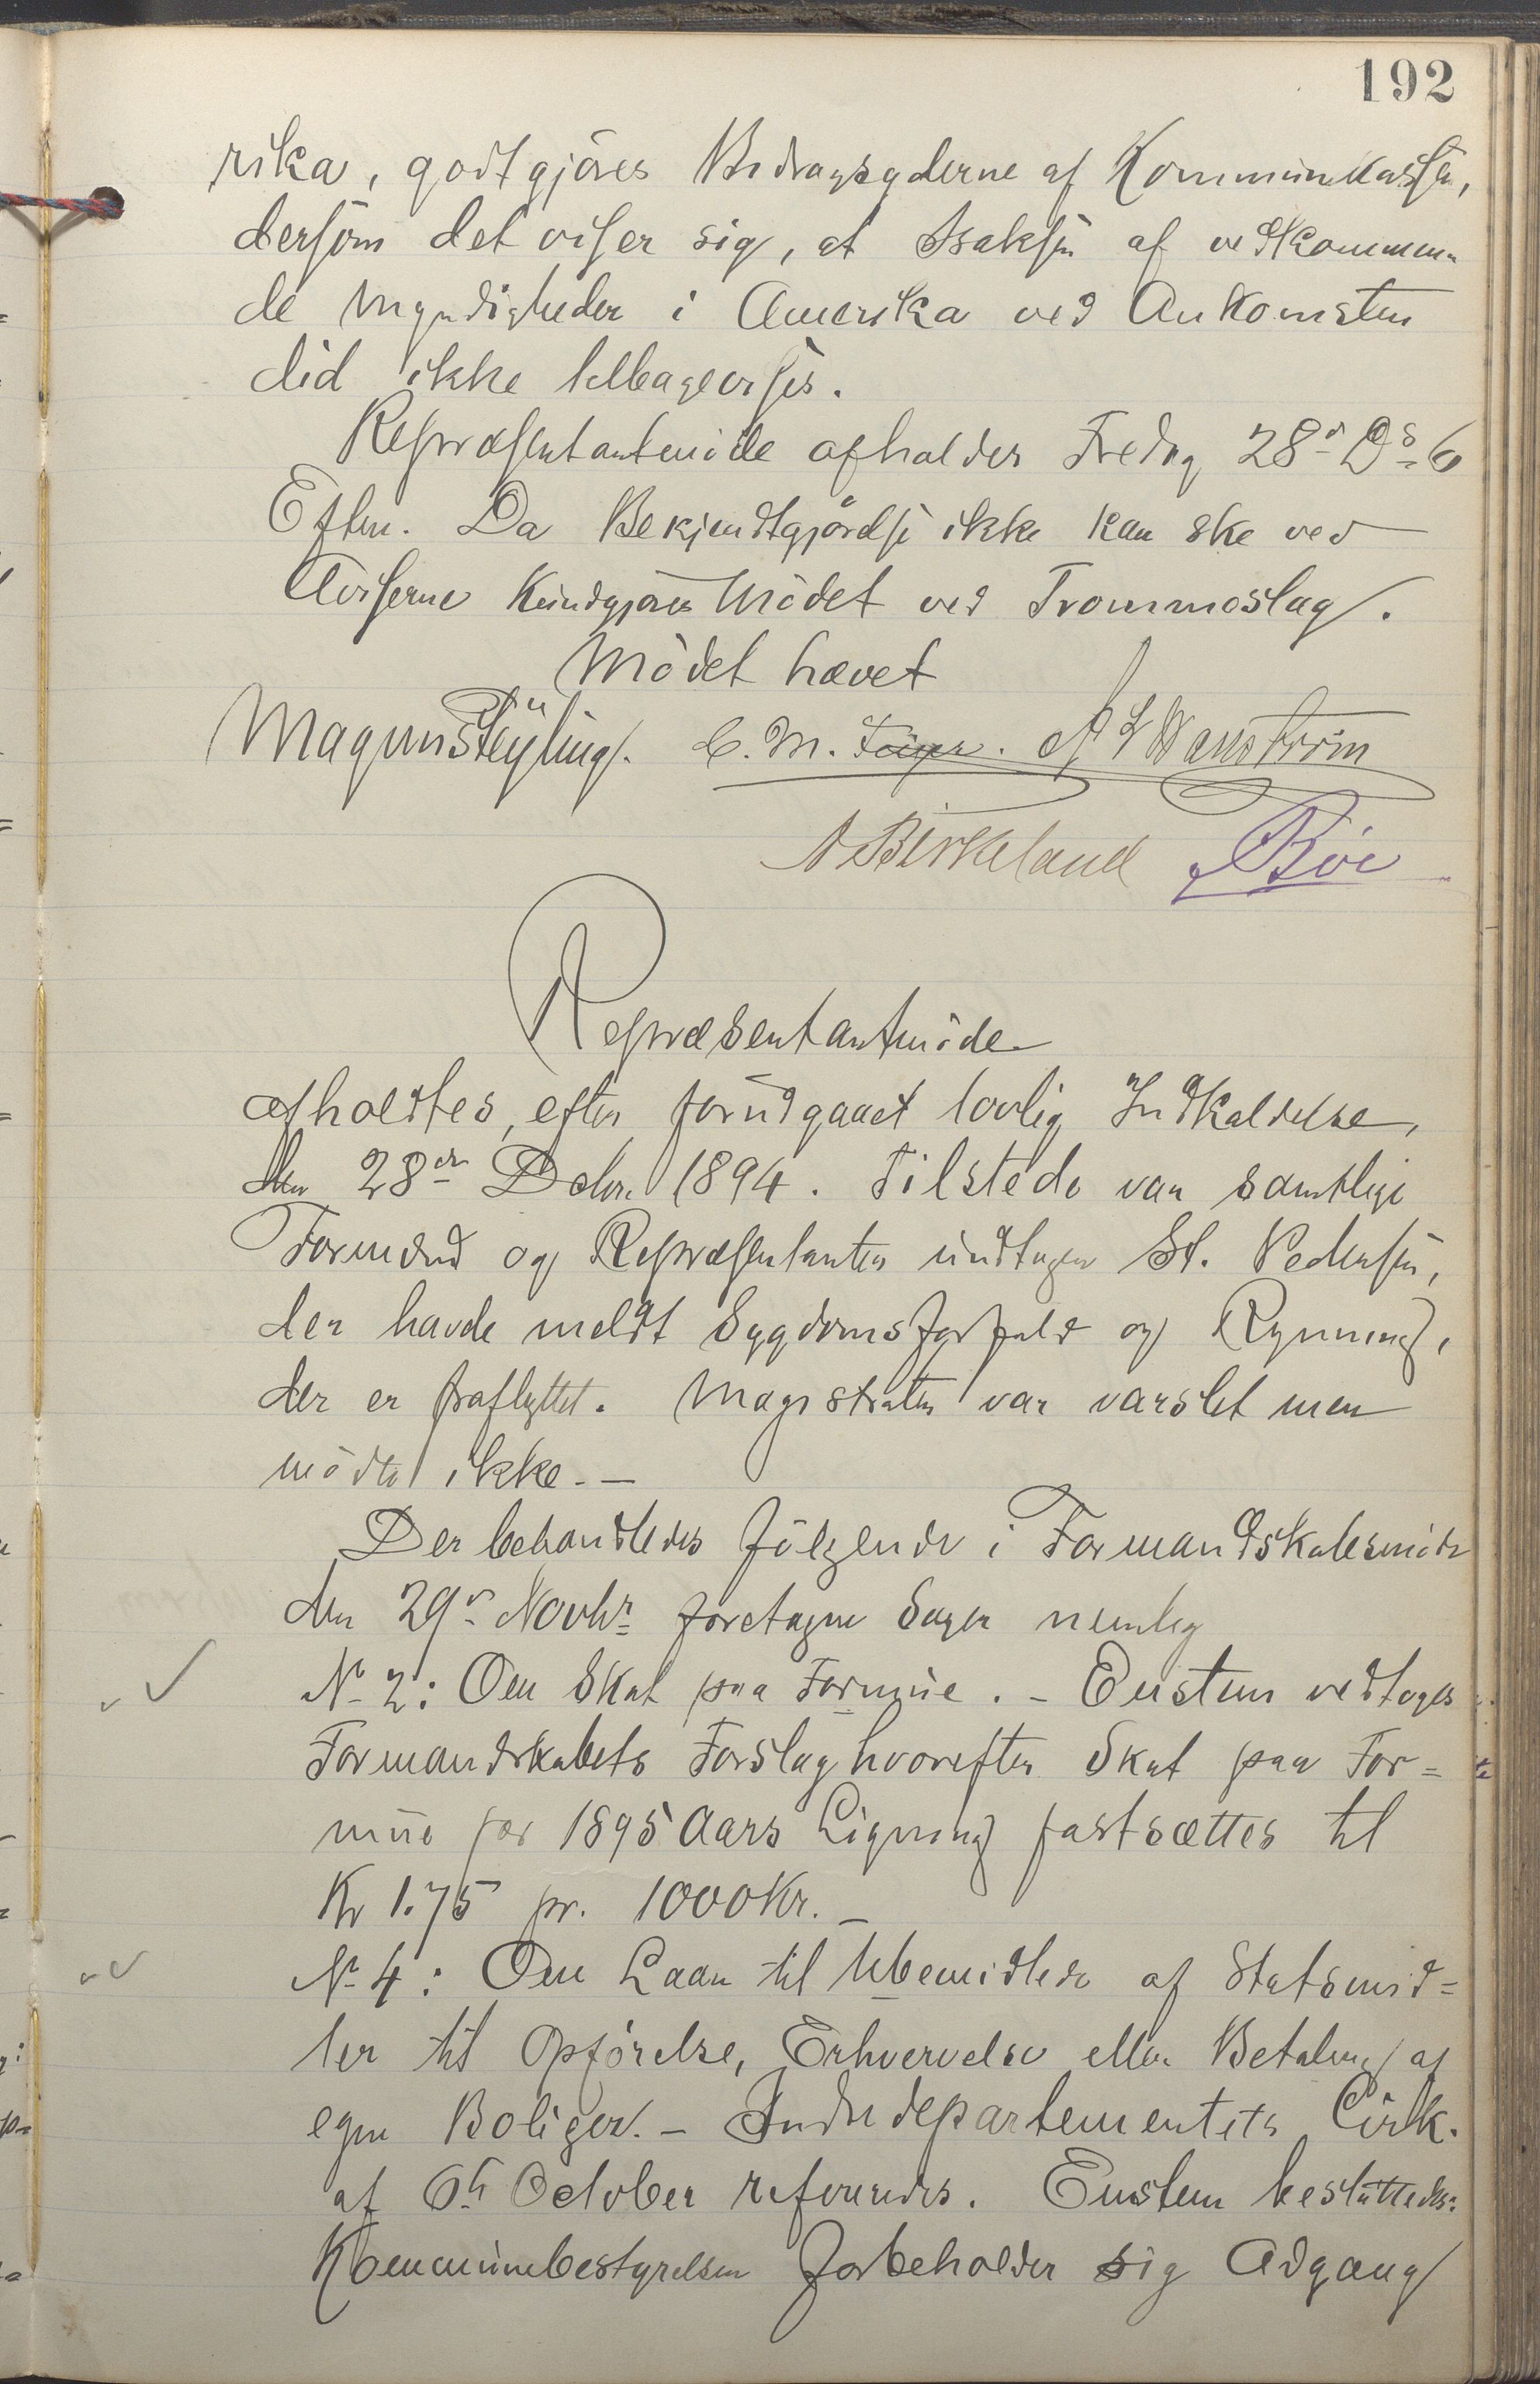 192
rika, godtgjöres Bidragsyderne af Kommunekassen,
dersom det viser sig, at Isaksen af vedkommen-
de Myndigheder i Amerika ved Ankomsten
did ikke tilbagevises.
Repræsentantmöde afholdes Fredag 28de Ds 6
Efterm. Da Bekjendtgjördse ikke kan ske ved
Aviserne kundgjöres Mödet ved Trommeslag.
Mödet hævet
Magnus C. M. Wenström
A Birkeland Böe
Repræsentantmöde
afholdtes, efter forudgaaet lovlig Indkaldelse,
den 28de Decbr. 1894. Tilstede var samtlige
Formænd og Repræsentanter undtagen St. Pedersen,
der havde meldt Sygdomsforfald og Rynning,
der er fraflyttet. Magistraten var varslet men
mödte ikke. —
Der behandledes fölgende i Formandskabsmöde
den 29de Novbr foretagne Sager nemlig
No 2: Om Skat paa Formue. - Enstem vedtoges
Formandskabets Forslag hvorefter Skat paa For=
mue for 1895 Aars Ligning fastsættes til
Kr 1.75 pr. 1000 Kr. —
No 4: Om Laan til Ubemidlede af Statsmid=
ler til Opförelse, Erhvervelse eller Betaling af
egne Boliger. - Indredepartementets Cirk.
af 6te October refereredes. Enstem besluttedes:
Kommunebestyrelsen forbeholder sig Adgang